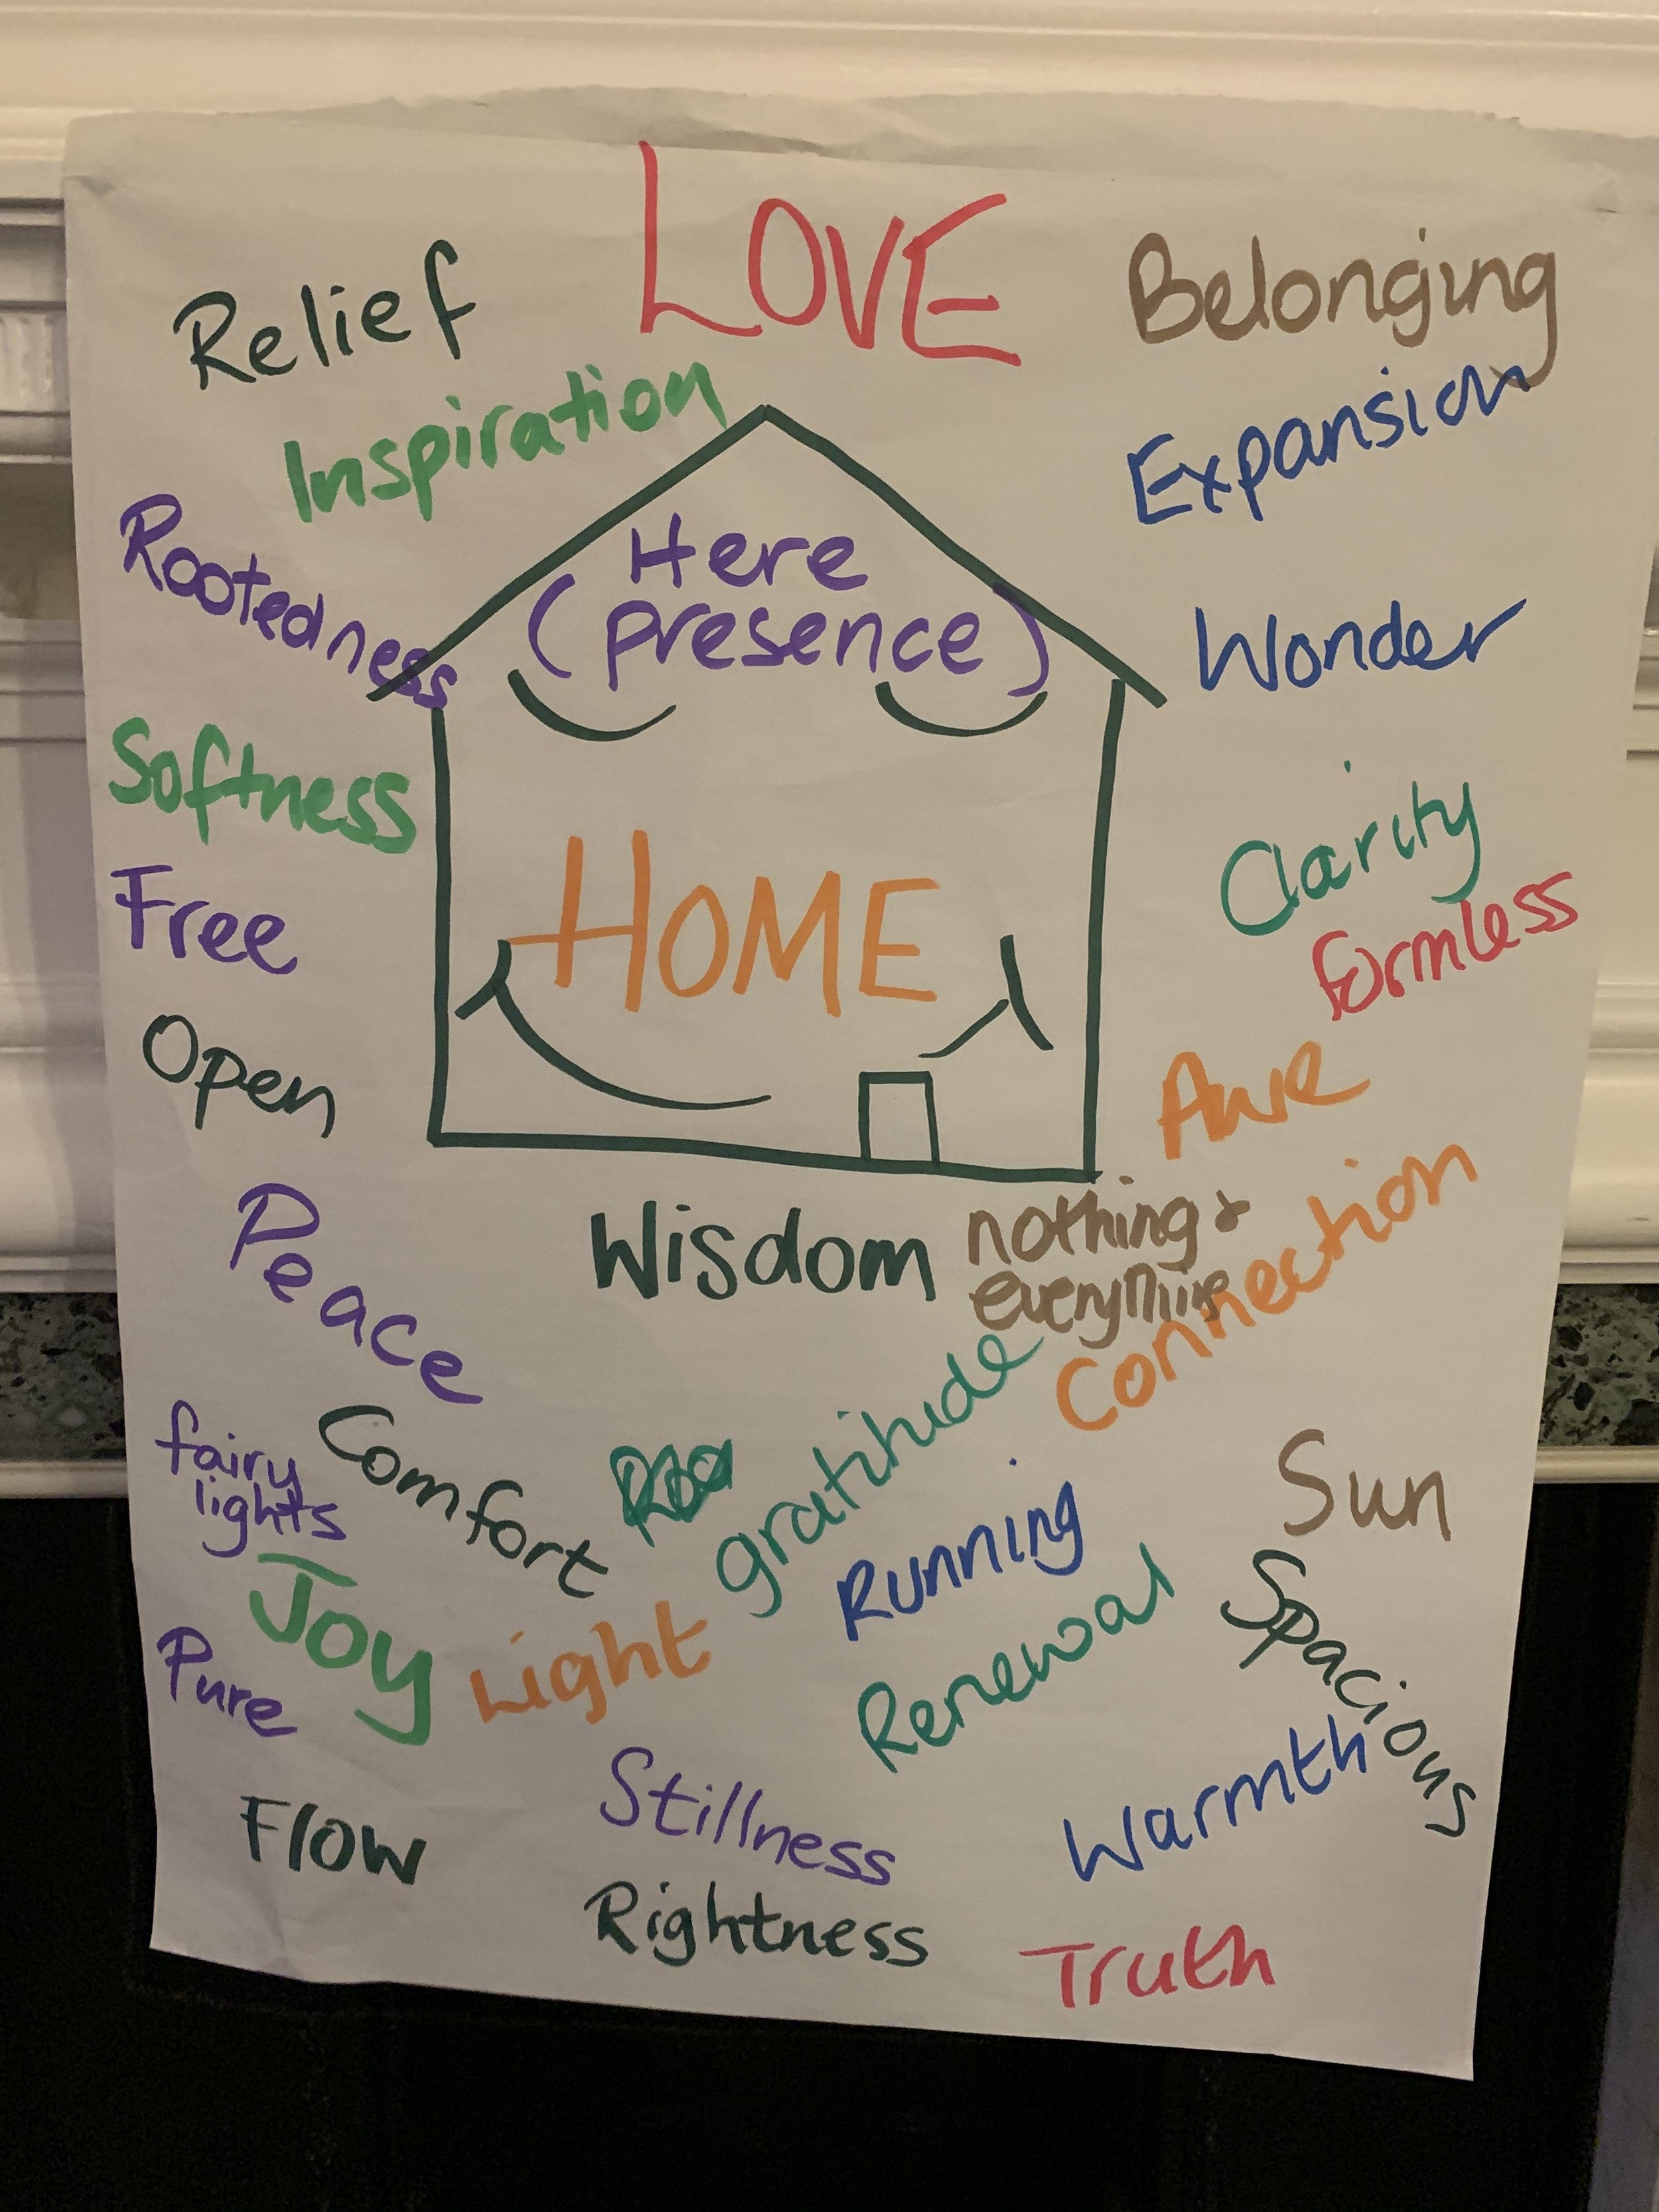 LOVE
Relief
Belonging
Inspiration
Expansion
Rootedness
Here
(presence)
Wonder
Softness
Clarity
Free
HOME
formless
Open
Awe
Peace
Wisdom
nothing &
everything
Connection
fairy
lights
Comfort
gratitude
Running
Sun
Joy
Light
Renewal
Spacious
Pure
Warmth
Flow
Stillness
Rightness
Truth